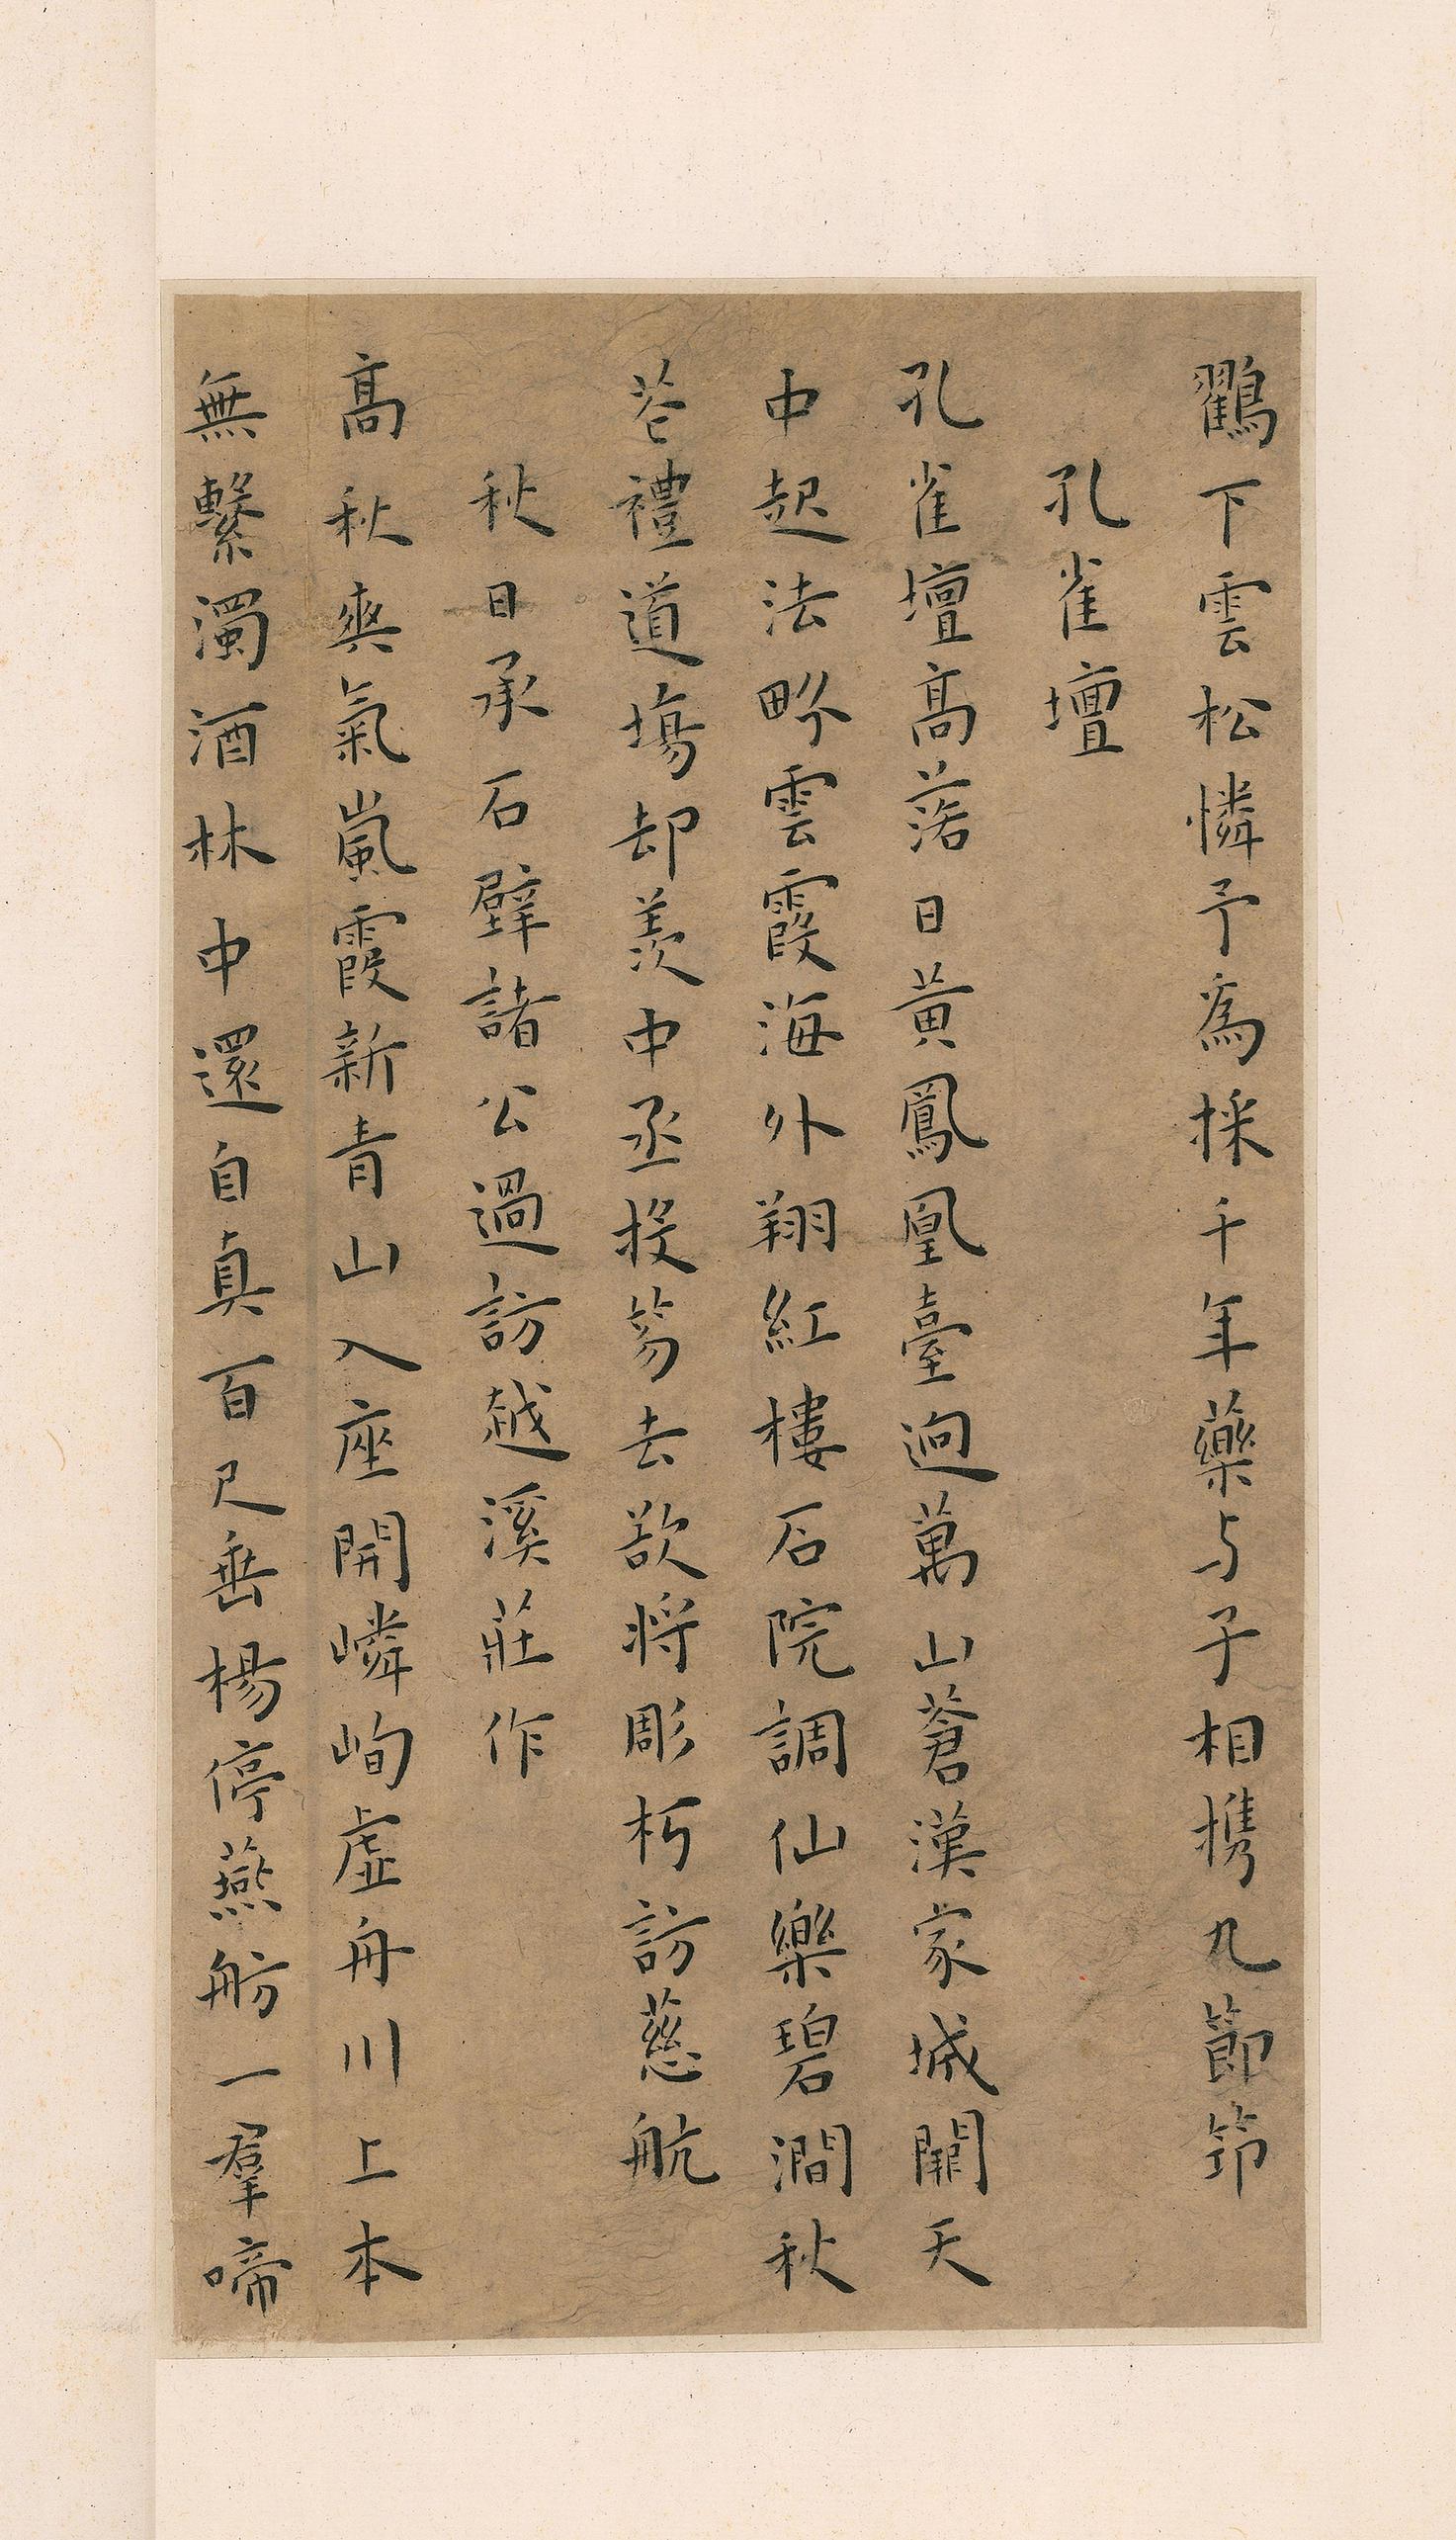 鸐下雲松憐予為採千年藥与子相携九節筇
孔雀壇
孔雀壇高落日黄鳳凰臺迥萬山蒼漢家城闕天
中起法畍雲霞海外翔紅樓石院調仙樂碧澗秋
禮道塲却羨中丞投笏去欲将彫朽訪慈航
秋日承石壁諸公過訪越溪莊作
高秋爽氣嵐霞新青山入座開嶙峋虚舟川上本
無繫濁酒林中還自真百尺垂楊停燕舫一羣啼